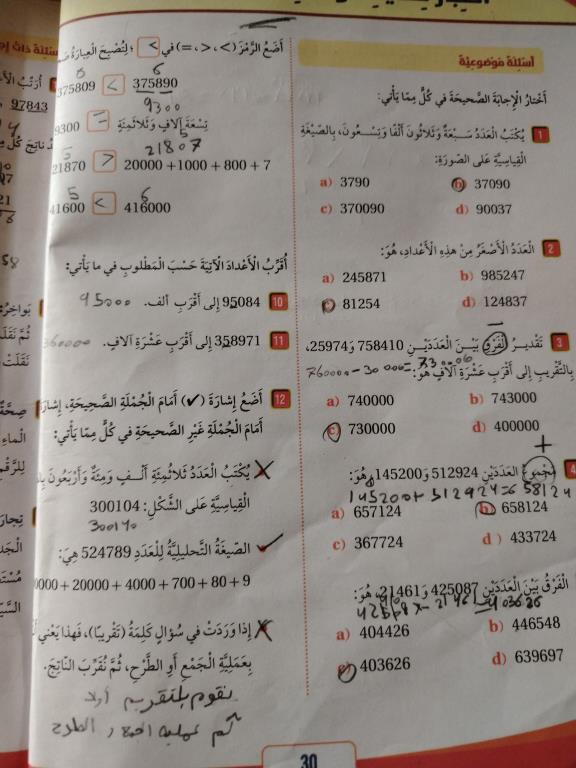 أسئلة موضوعية
أختار الإجابة الصحيحة في كل مما يأتي:
1 يكتب العدد سبعة وثلاثون ألفا وتسعون، بالصيغة
القياسية على الصورة:
a) 3790 b) 37090
c) 370090 d) 90037
2 العدد الأصغر من هذه الأعداد، هو:
a) 245871 b) 985247
c) 81254 d) 124837
3 تقدير الفرق بين العددين 758410 و 25974،
بالتقريب إلى أقرب عشرة آلاف هو:
760000 - 30000 =
a) 740000 b) 743000
c) 730000 d) 400000
+
4 مجموع العددين 512924 و 145200 هو:
145200 + 512924 = 658124
a) 657124 b) 658124
c) 367724 d) 433724
الفرق بين العددين 425087 و 21461، هو:
a) 404426 b) 446548
c) 403626 d) 639697
أضع الرمز (>، <، =) في ؛ لتصبح العبارة
6 6
375809 < 375890
9300
9300 = تسعة آلاف وثلاثمئة
5 21807 5
21870 > 20000 + 1000 + 800 + 7
5 6
41600 < 416000
أقرب الأعداد الآتية حسب المطلوب في ما يأتي:
10 95084 إلى أقرب ألف. 95000
11 358971 إلى أقرب عشرة آلاف. 360000
12 أضع إشارة (✓) أمام الجملة الصحيحة، إشارة
أمام الجملة غير الصحيحة في كل مما يأتي:
يكتب العدد ثلاثمئة ألف ومئة وأربعون
القياسية على الشكل: 300104
300140
الصيغة التحليلية للعدد 524789 هي:
0000 + 20000 + 4000 + 700 + 80 + 9
إذا وردت في سؤال كلمة (تقريبا)، فهذا يعني
بعملية الجمع أو الطرح، ثم نقرب الناتج.
نقوم بالتقريب أولا
ثم عملية الجمع أو الطرح
30
97843